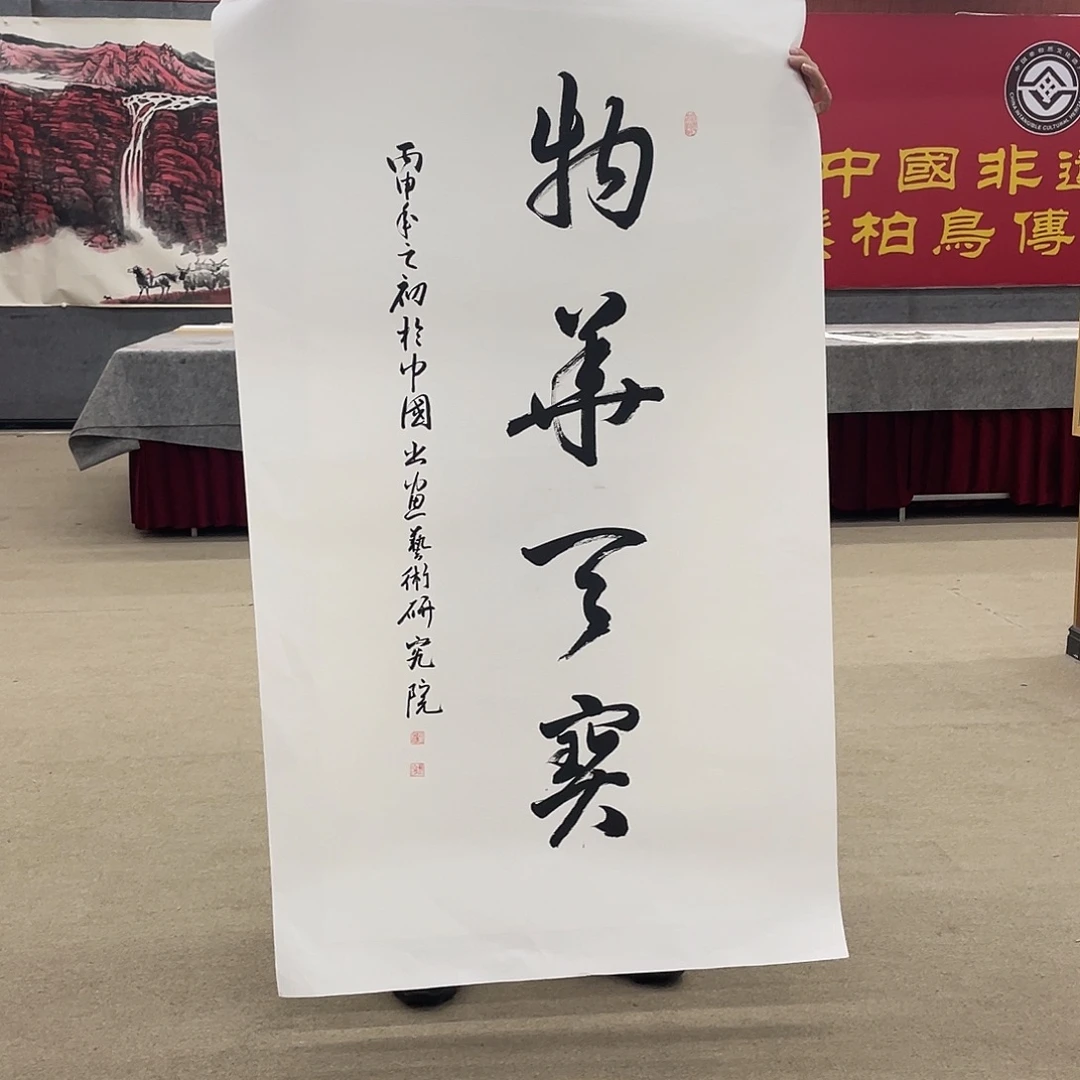 物華天寶
丙申年之初於中國書畫藝術研究院
中國非遺
柏鳥傳